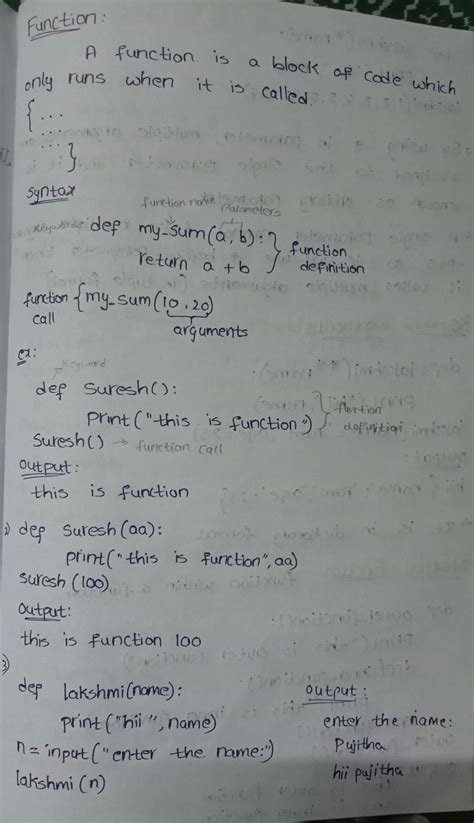 Function:
A function is a block of code which
only runs when it is called.
{ ...
...
... }
Syntax
function name Parameters
Keyword def my_sum(a, b):
return a + b } function definition
function call { my_sum(10, 20)
arguments
ex:
keyword
def Suresh():
Print("this is function")
Suresh() → function call
output:
this is function
2) def Suresh(aa):
print("this is function", aa)
suresh (100)
output:
this is function 100
3)
def lakshmi(name):
print("hii", name)
n = input("enter the name:")
lakshmi (n)
output:
enter the name:
Pujitha
hii pujitha